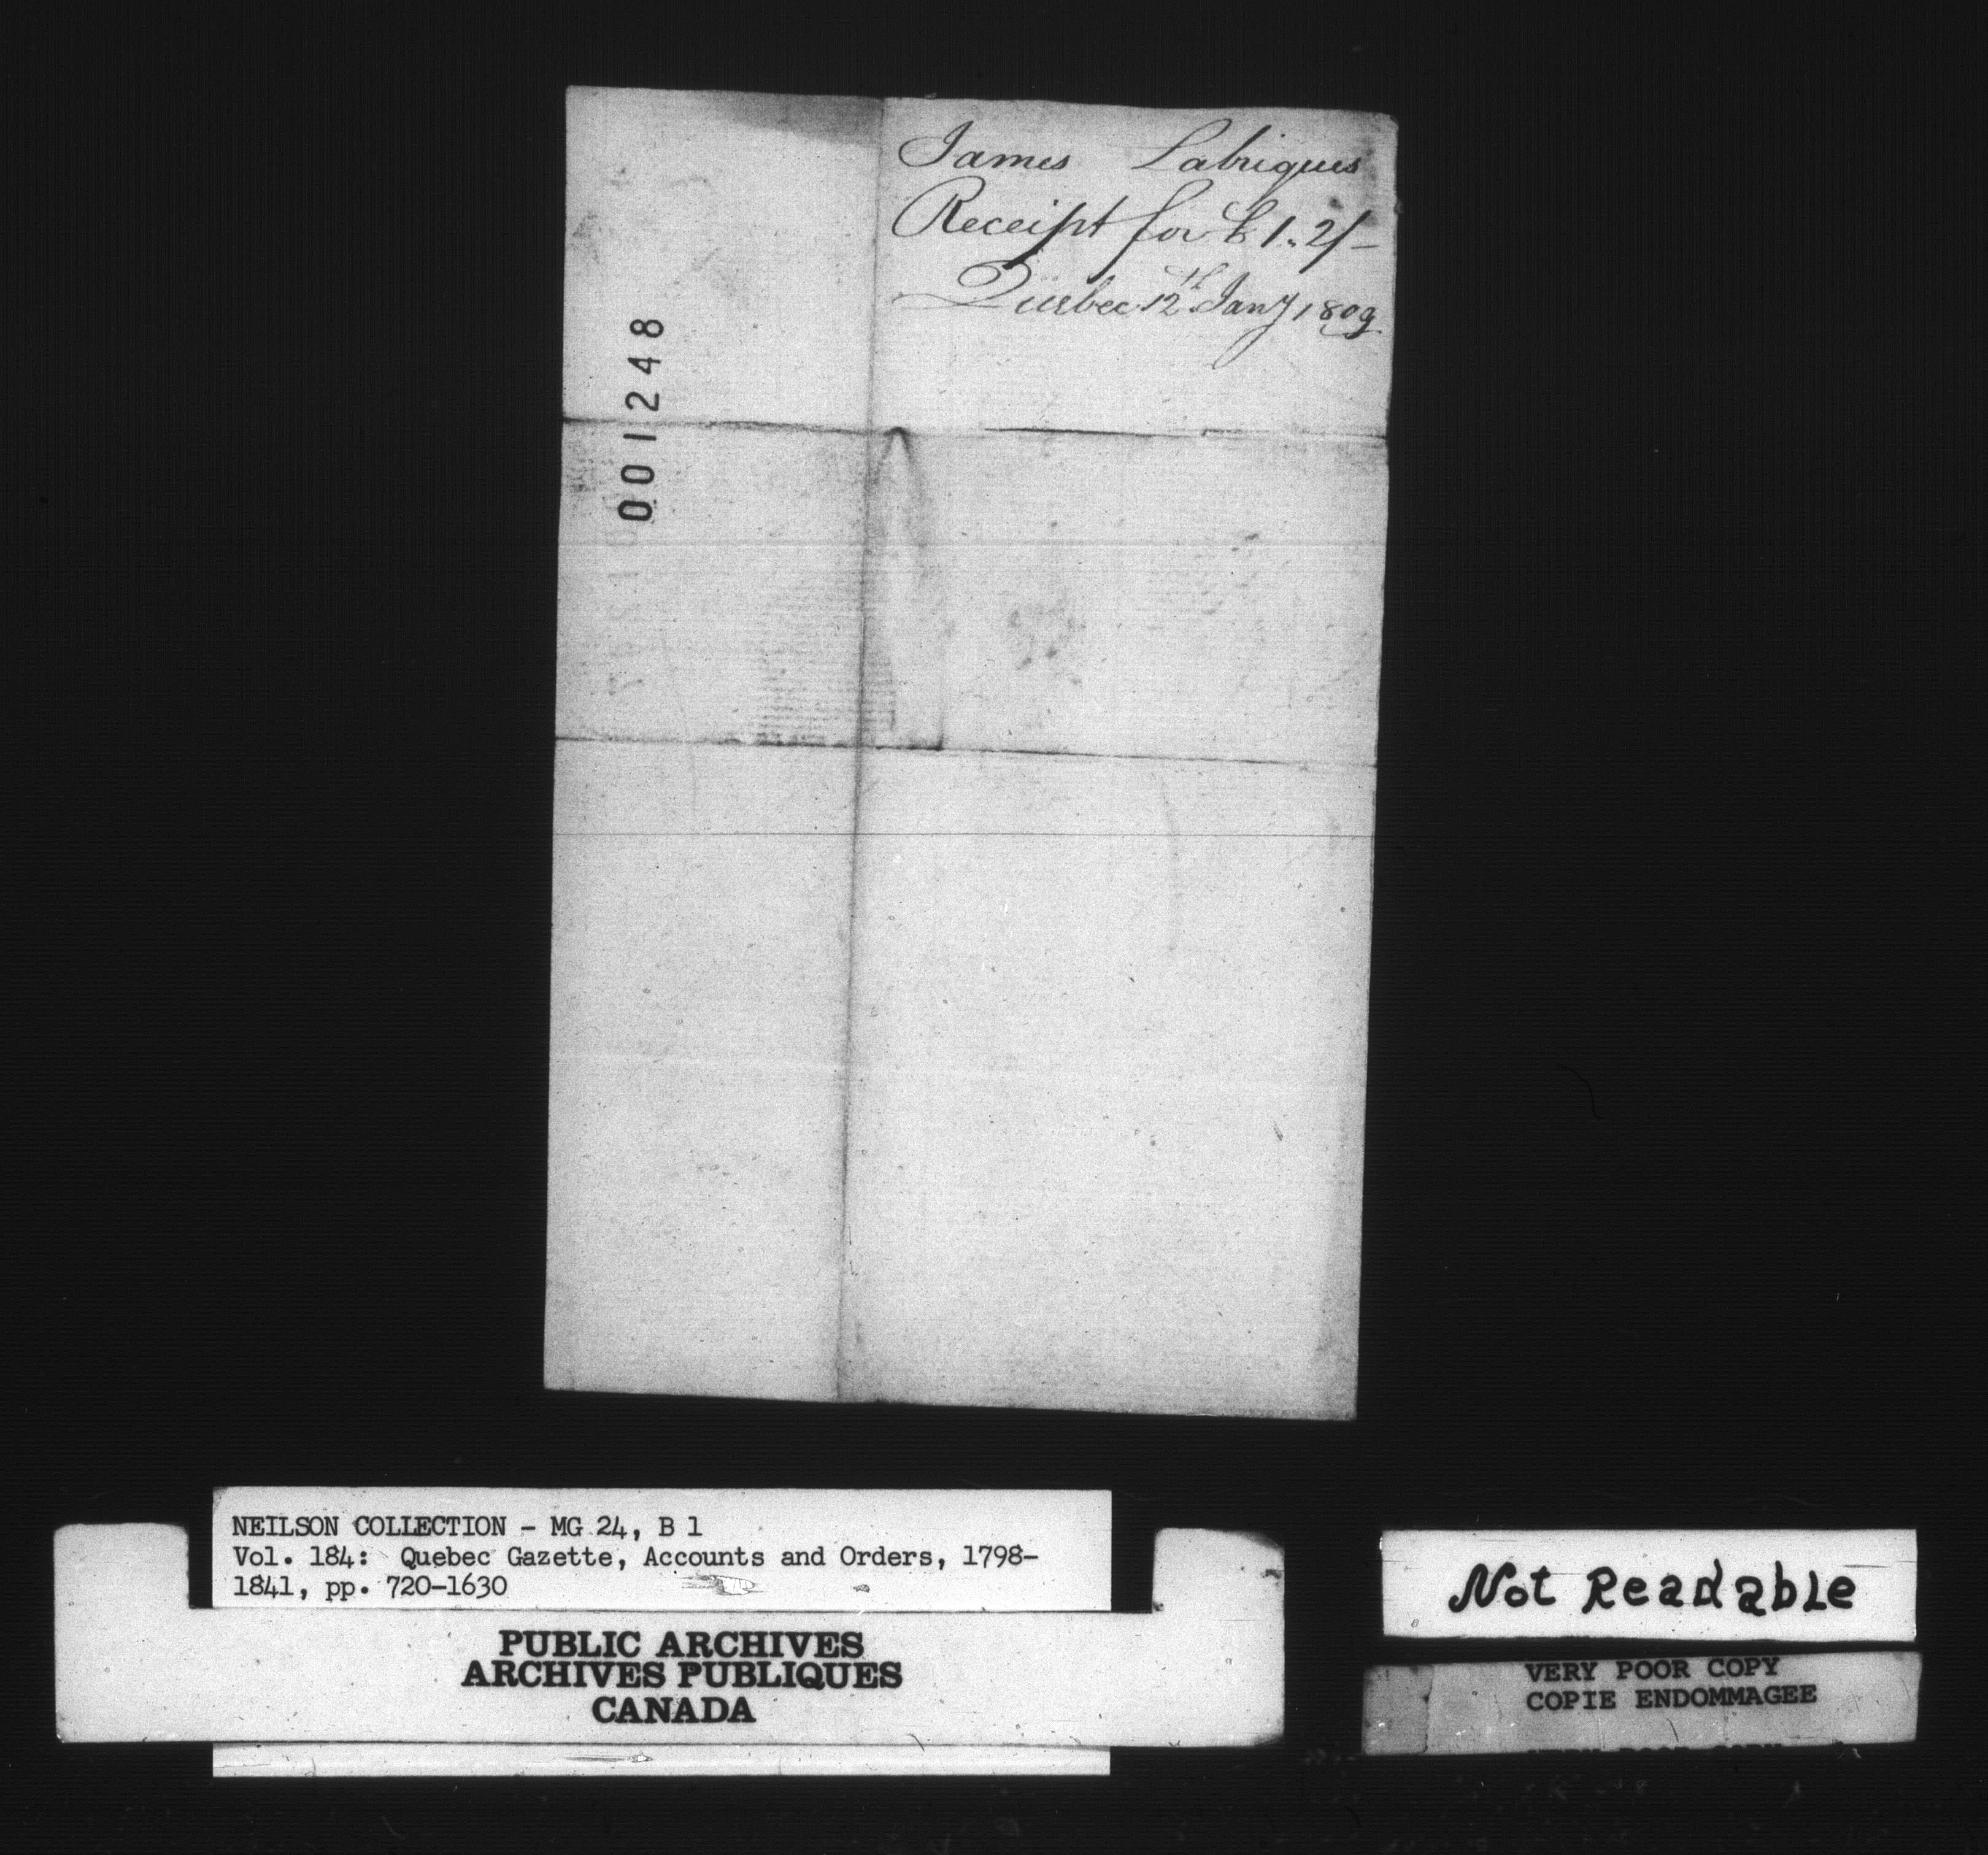 James Labriques
Receipt for £1..2/–
Quebec 12th Jany 1809
001248
NEILSON COLLECTION - MG 24, B 1
Vol. 184: Quebec Gazette, Accounts and Orders, 1798-
1841, pp. 720-1630
PUBLIC ARCHIVES
ARCHIVES PUBLIQUES
CANADA
Not Readable
VERY POOR COPY
COPIE ENDOMMAGEE